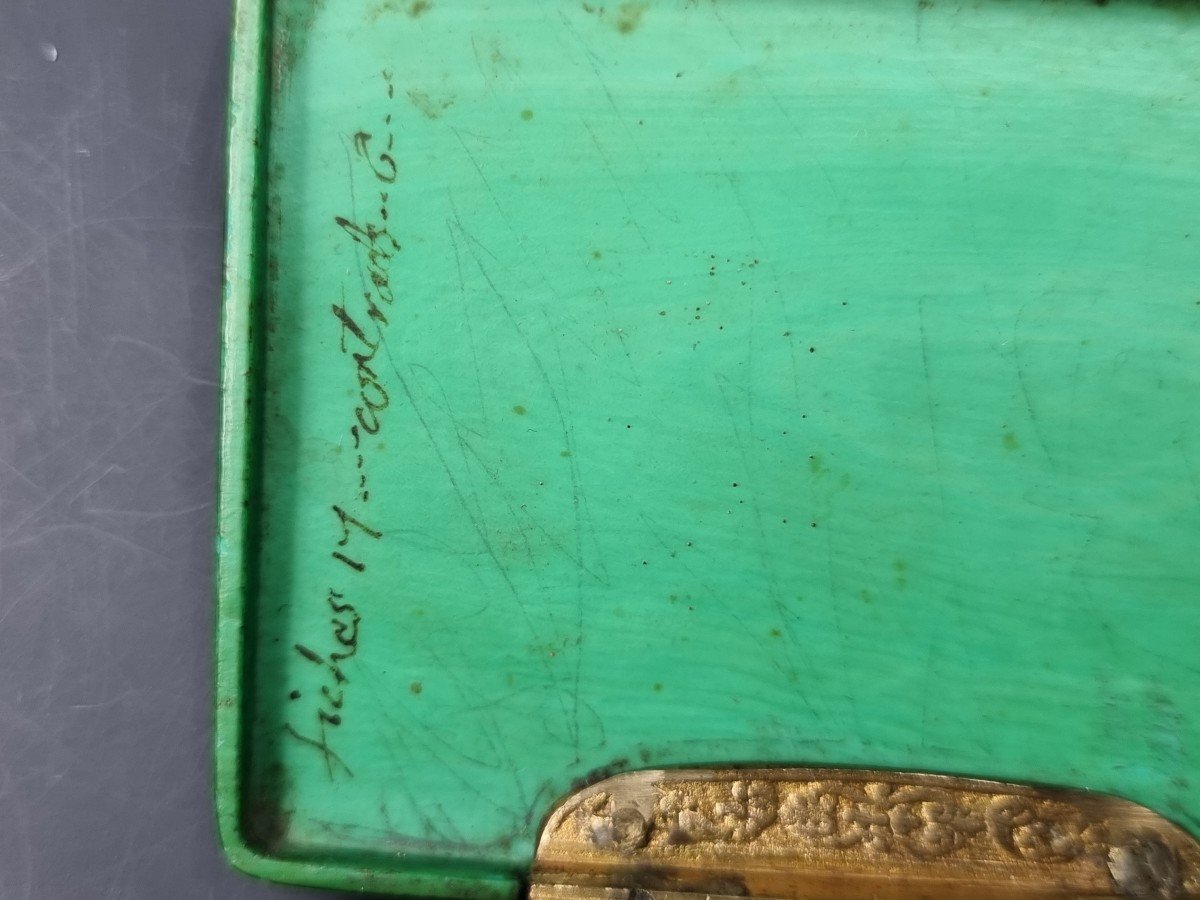 fiches 17---contrats--6---